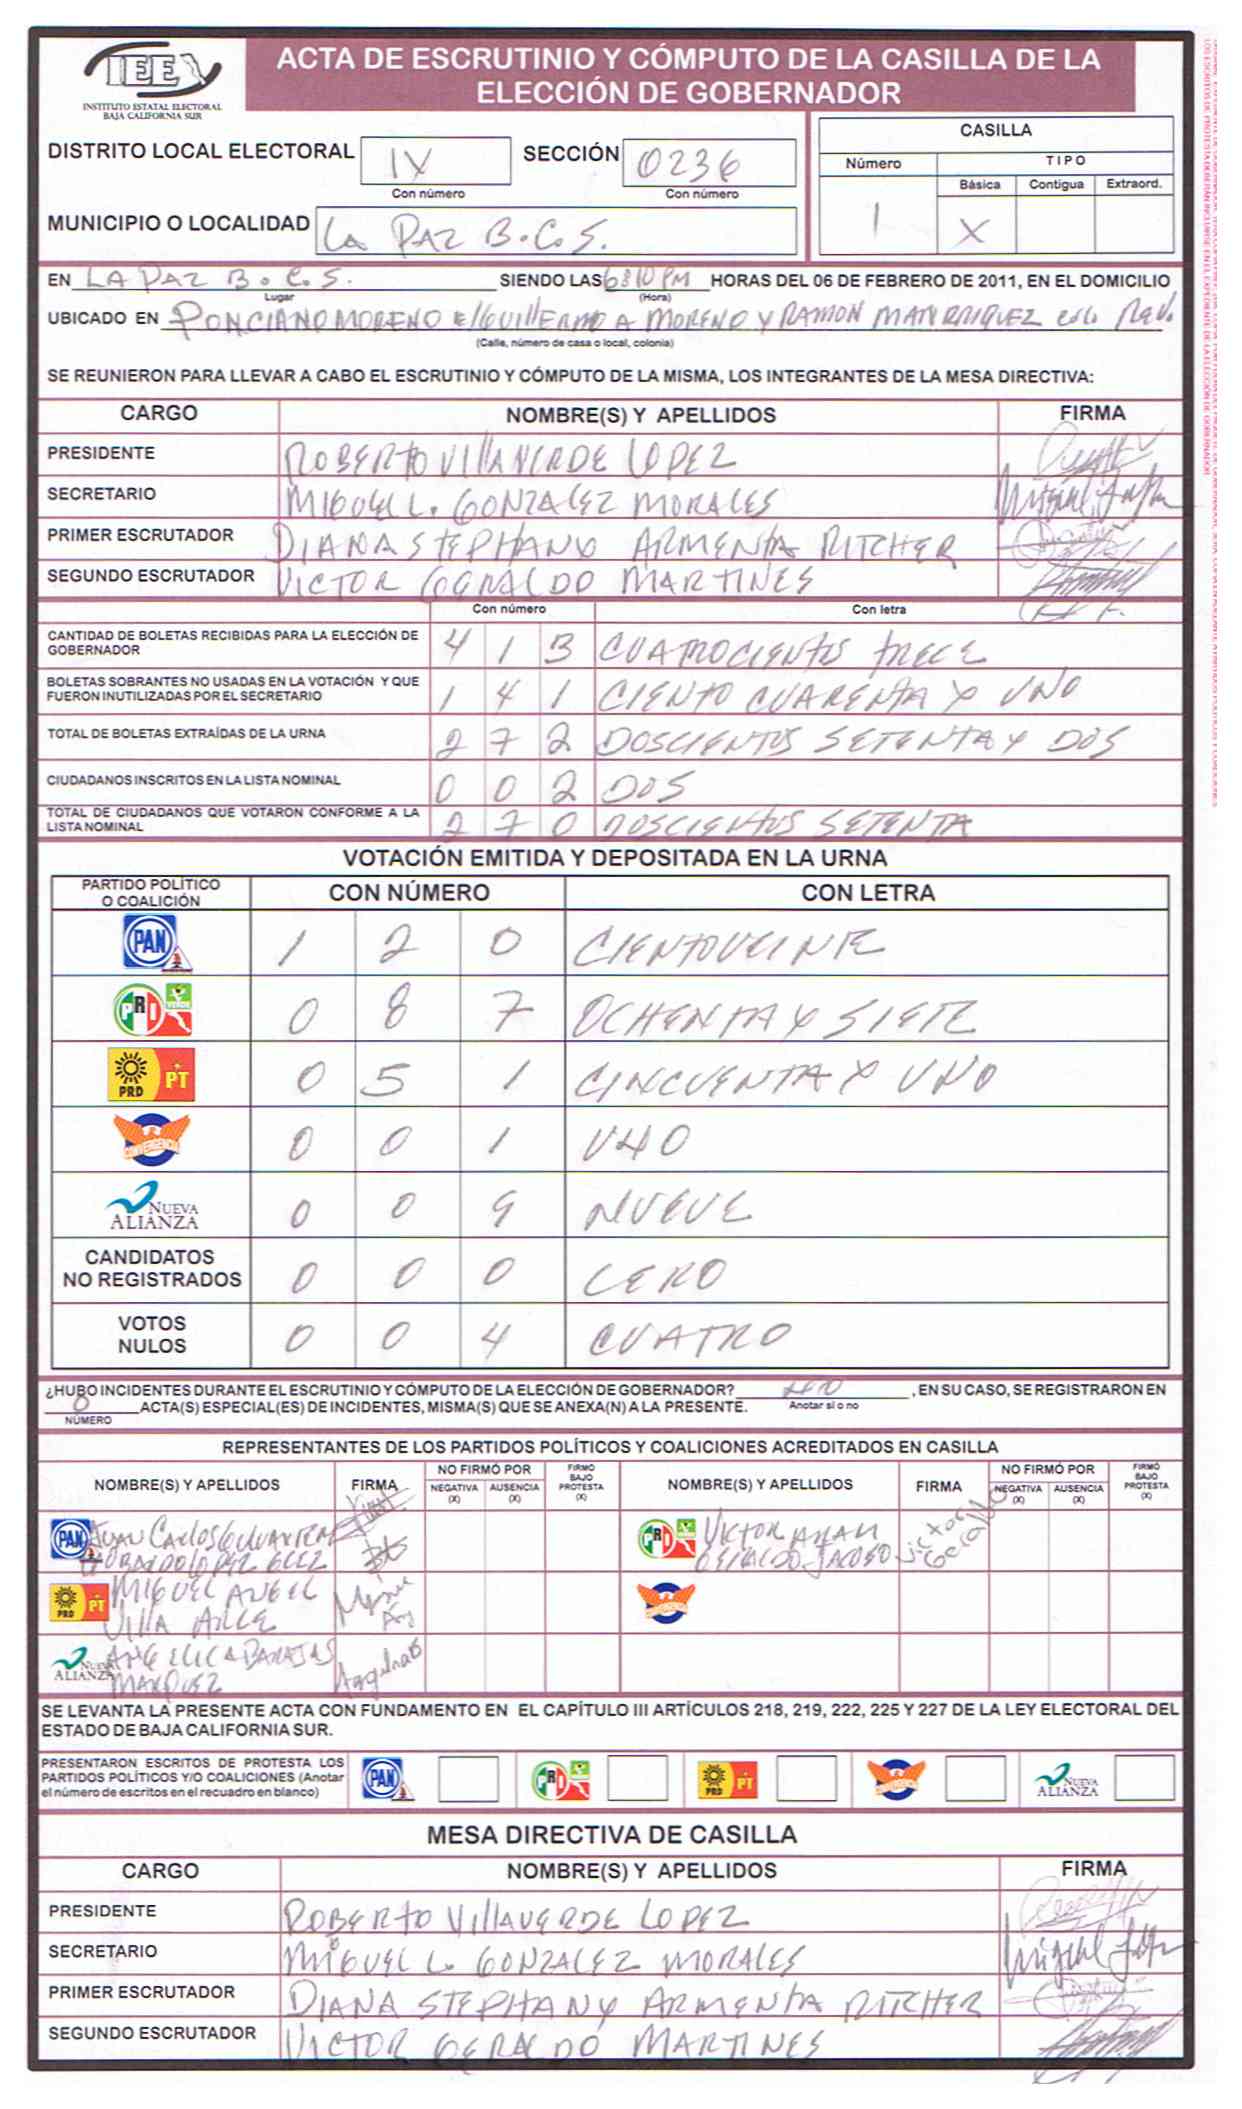 IEE
INSTITUTO ESTATAL ELECTORAL
BAJA CALIFORNIA SUR
ACTA DE ESCRUTINIO Y CÓMPUTO DE LA CASILLA DE LA
ELECCIÓN DE GOBERNADOR
DISTRITO LOCAL ELECTORAL IX SECCIÓN 0236
Con número Con número
MUNICIPIO O LOCALIDAD La PAZ B.C.S.
CASILLA
Número TIPO
Básica Contigua Extraord.
1 X
EN LA PAZ B.C.S. SIENDO LAS 6:10 PM HORAS DEL 06 DE FEBRERO DE 2011, EN EL DOMICILIO
Lugar (Hora)
UBICADO EN PONCIANO MORENO E/ GUILLERMO A MORENO Y RAMON MANRRIQUEZ COL. Rev.
(Calle, número de casa o local, colonia)
SE REUNIERON PARA LLEVAR A CABO EL ESCRUTINIO Y CÓMPUTO DE LA MISMA, LOS INTEGRANTES DE LA MESA DIRECTIVA:
CARGO NOMBRE(S) Y APELLIDOS FIRMA
PRESIDENTE ROBERTO VILLAVERDE LOPEZ
SECRETARIO MIGUEL L. GONZALEZ MORALES
PRIMER ESCRUTADOR DIANA STEPHANY ARMENTA RITCHER
SEGUNDO ESCRUTADOR VICTOR GERALDO MARTINES
Con número Con letra
CANTIDAD DE BOLETAS RECIBIDAS PARA LA ELECCIÓN DE
GOBERNADOR 4 1 3 CUATROCIENTOS TRECE
BOLETAS SOBRANTES NO USADAS EN LA VOTACIÓN Y QUE
FUERON INUTILIZADAS POR EL SECRETARIO 1 4 1 CIENTO CUARENTA Y UNO
TOTAL DE BOLETAS EXTRAÍDAS DE LA URNA 2 7 2 DOSCIENTOS SETENTA Y DOS
CIUDADANOS INSCRITOS EN LA LISTA NOMINAL 0 0 2 DOS
TOTAL DE CIUDADANOS QUE VOTARON CONFORME A LA
LISTA NOMINAL 2 7 0 DOSCIENTOS SETENTA
VOTACIÓN EMITIDA Y DEPOSITADA EN LA URNA
PARTIDO POLÍTICO
O COALICIÓN CON NÚMERO CON LETRA
PAN 1 2 0 CIENTOVEINTE
PRI VERDE 0 8 7 OCHENTA Y SIETE
PRD PT 0 5 1 CINCUENTA Y UNO
CONVERGENCIA 0 0 1 UNO
NUEVA ALIANZA 0 0 9 NUEVE
CANDIDATOS
NO REGISTRADOS 0 0 0 CERO
VOTOS
NULOS 0 0 4 CUATRO
¿HUBO INCIDENTES DURANTE EL ESCRUTINIO Y CÓMPUTO DE LA ELECCIÓN DE GOBERNADOR? , EN SU CASO, SE REGISTRARON EN
0 ACTA(S) ESPECIAL(ES) DE INCIDENTES, MISMA(S) QUE SE ANEXA(N) A LA PRESENTE. Anotar sí o no
NÚMERO
REPRESENTANTES DE LOS PARTIDOS POLÍTICOS Y COALICIONES ACREDITADOS EN CASILLA
NOMBRE(S) Y APELLIDOS FIRMA NO FIRMÓ POR NEGATIVA (X) AUSENCIA (X) FIRMÓ BAJO PROTESTA (X) NOMBRE(S) Y APELLIDOS FIRMA NO FIRMÓ POR NEGATIVA (X) AUSENCIA (X) FIRMÓ BAJO PROTESTA (X)
PAN Juan Carlos PRI VERDE VICTOR Victor
LOPEZ GLEZ GERALDO Geraldo
PRD PT MIGUEL ANGEL CONVERGENCIA
VILLA
NUEVA ALIANZA ANGELICA BARAJAS
MARQUEZ
SE LEVANTA LA PRESENTE ACTA CON FUNDAMENTO EN EL CAPÍTULO III ARTÍCULOS 218, 219, 222, 225 Y 227 DE LA LEY ELECTORAL DEL
ESTADO DE BAJA CALIFORNIA SUR.
PRESENTARON ESCRITOS DE PROTESTA LOS
PARTIDOS POLÍTICOS Y/O COALICIONES (Anotar
el número de escritos en el recuadro en blanco) PAN PRI VERDE PRD PT CONVERGENCIA NUEVA ALIANZA
MESA DIRECTIVA DE CASILLA
CARGO NOMBRE(S) Y APELLIDOS FIRMA
PRESIDENTE ROBERTO VILLAVERDE LOPEZ
SECRETARIO MIGUEL L. GONZALEZ MORALES
PRIMER ESCRUTADOR DIANA STEPHANY ARMENTA RITCHER
SEGUNDO ESCRUTADOR VICTOR GERALDO MARTINES